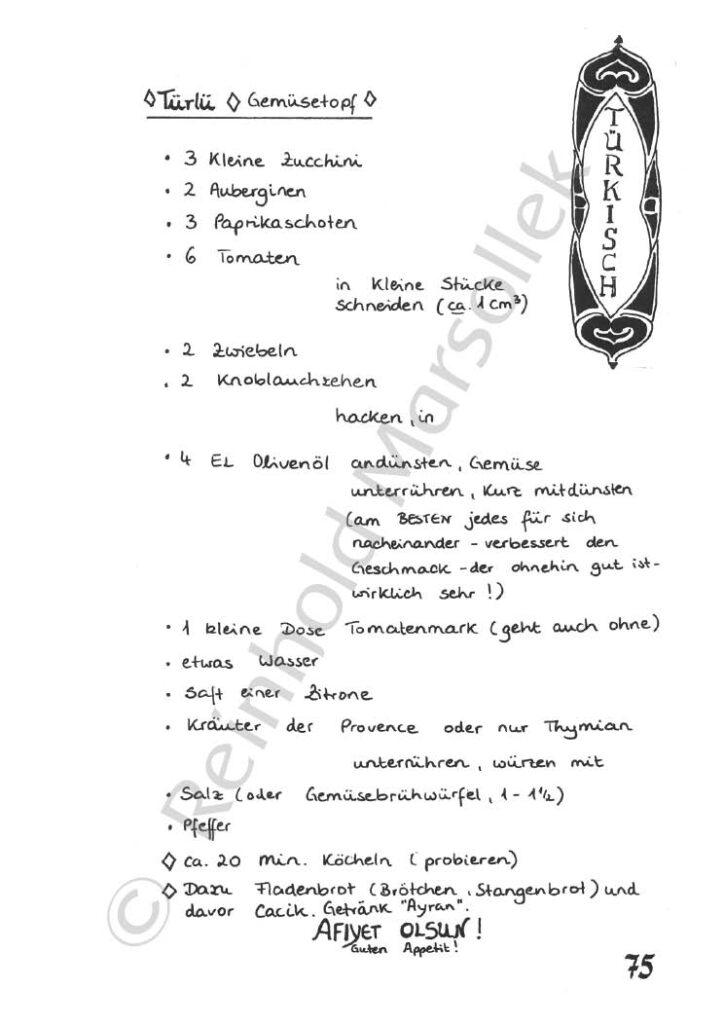 ◊ Türlü ◊ Gemüsetopf ◊
TÜRKISCH
• 3 kleine Zucchini
• 2 Auberginen
• 3 Paprikaschoten
• 6 Tomaten
in kleine Stücke
schneiden (ca. 1 cm³)
• 2 Zwiebeln
• 2 Knoblauchzehen
hacken, in
• 4 EL Olivenöl andünsten, Gemüse
unterrühren, kurz mitdünsten
(am BESTEN jedes für sich
nacheinander - verbessert den
Geschmack - der ohnehin gut ist -
wirklich sehr!)
• 1 kleine Dose Tomatenmark (geht auch ohne)
• etwas Wasser
• Saft einer Zitrone
• Kräuter der Provence oder nur Thymian
unterrühren, würzen mit
• Salz (oder Gemüsebrühwürfel, 1 - 1½)
• Pfeffer
◊ ca. 20 min. köcheln (probieren)
◊ Dazu Fladenbrot (Brötchen, Stangenbrot) und
davor Cacik. Getränk "Ayran".
AFIYET OLSUN!
Guten Appetit!
75
© Reinhold Marsollek